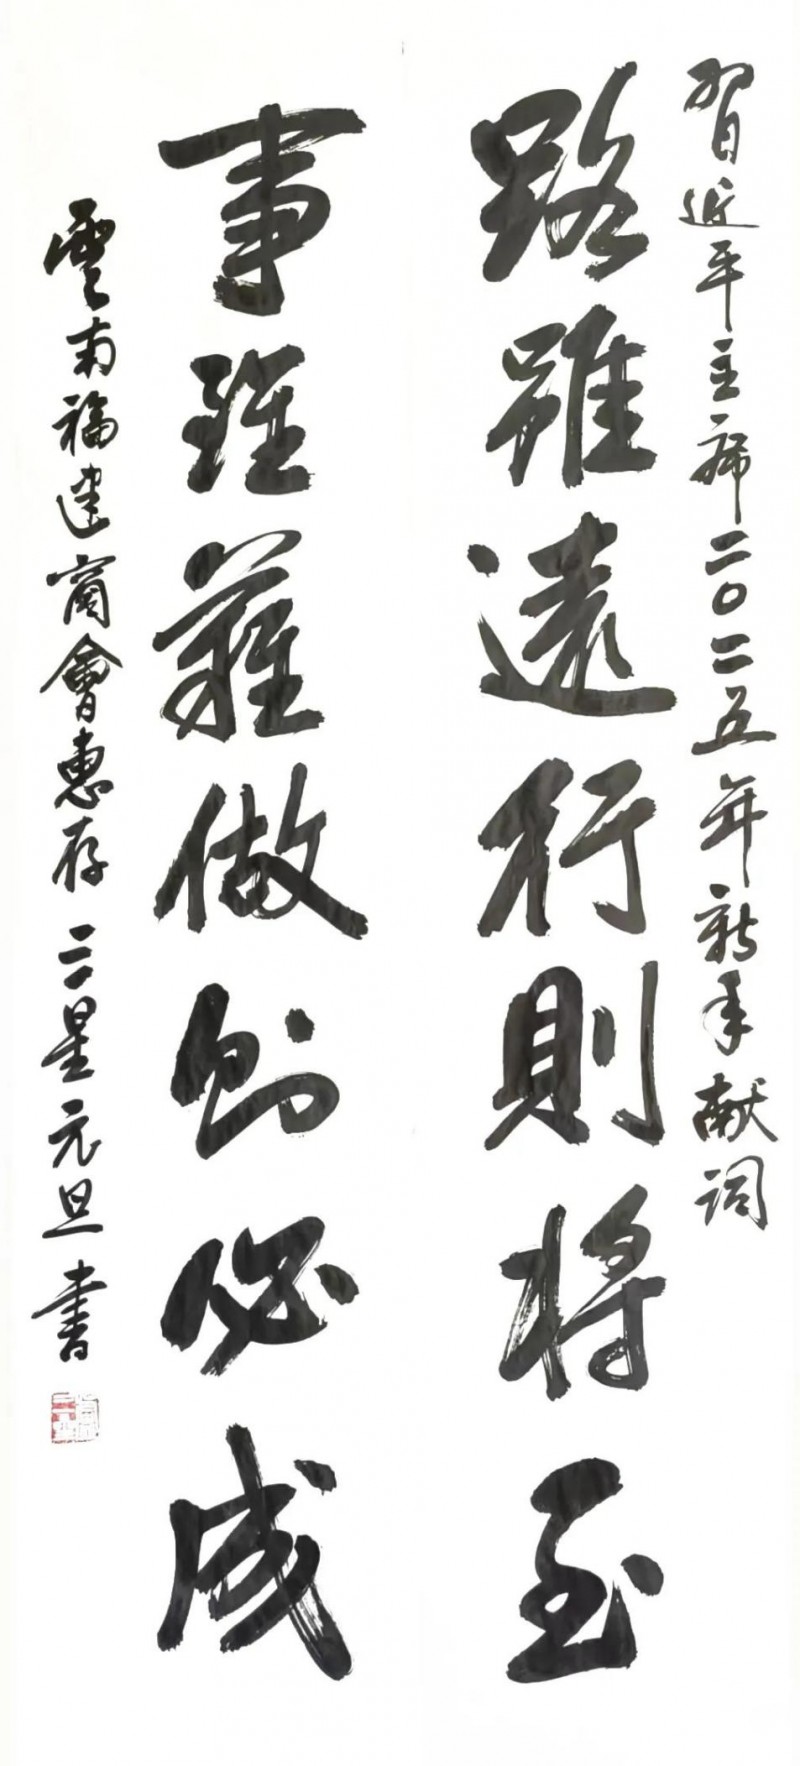 習近平主席二〇二五年新年献词
路雖遠行則将至
事雖難做則必成
雲南福建商會惠存 三星元旦書